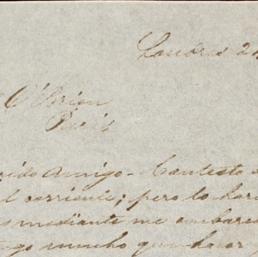 Londres 2
O'Brien
Paris
Amigo - Contesto
corriente; pero lo har
mediante me embar
mucho que hacer